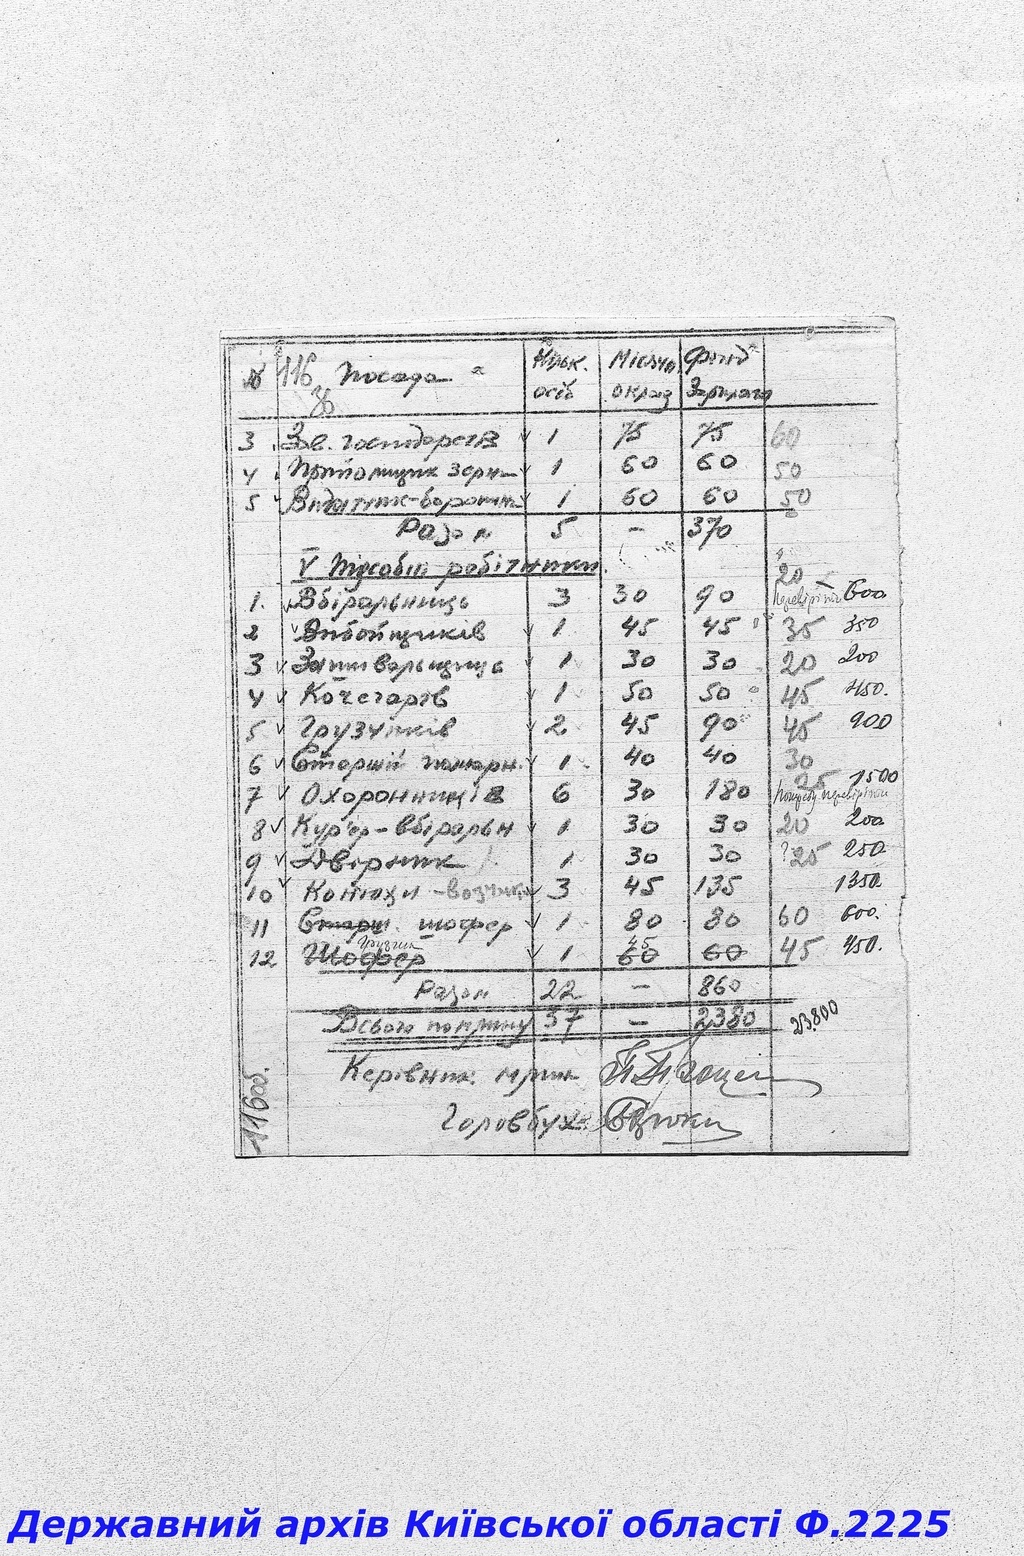 № 116 Посада Кільк. осіб Місячн. оклад Фонд Зарплати
36
3 Зав. господарств 1 75 75 60
4 Прийомщик зерна 1 60 60 50
5 Видатчик-ваговик 1 60 60 50
Разом 5 — 370
V Підсобні робітники.
20
1. Вбіральниць 3 30 90 перевірити 600
2 Вибойщиків 1 45 45 35 350
3 Зашивальщиць 1 30 30 20 200
4 Кочегарів 1 50 50 45 450.
5 Грузчиків 2 45 90 45 900
6 Старший 1 40 40 30
7 Охоронників 6 30 180 25 1500
перевірити
8 Кур'єр-вбіральн 1 30 30 20 200
9 Двірник 1 30 30 ?25 250
10 Конюхи-возчики 3 45 135 1350
11 Старш. шофер 1 80 80 60 600.
грузчик 45
12 Шофер 1 60 60 45 450.
Разом 22 — 860
Всього по млину 57 — 2380 23800
Керівник млина
Головбух